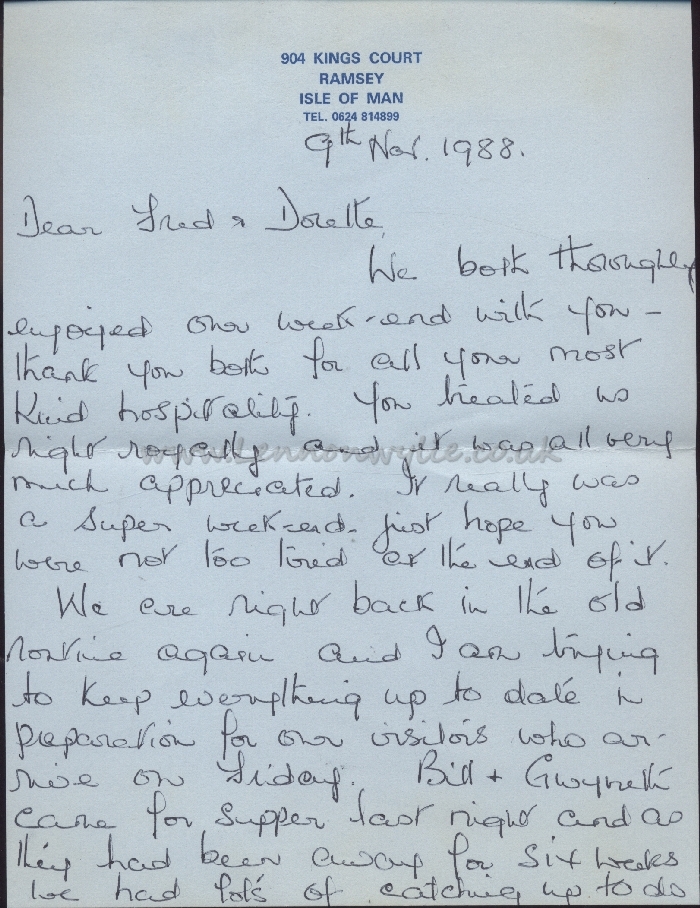 904 KINGS COURT
RAMSEY
ISLE OF MAN
TEL. 0624 814899
9th Nov. 1988.
Dear Fred & Dorette,
We both thoroughly
enjoyed our week-end with you -
thank you both for all your most
kind hospitality. You treated us
right royally and it was all very
www.lennonwylie.co.uk
much appreciated. It really was
a super week-end - just hope you
were not too tired at the end of it.
We are right back in the old
routine again and I am trying
to keep everything up to date in
preparation for our visitors who ar-
rive on Friday. Bill + Gwyneth
came for supper last night and as
they had been away for six weeks
we had lots of catching up to do